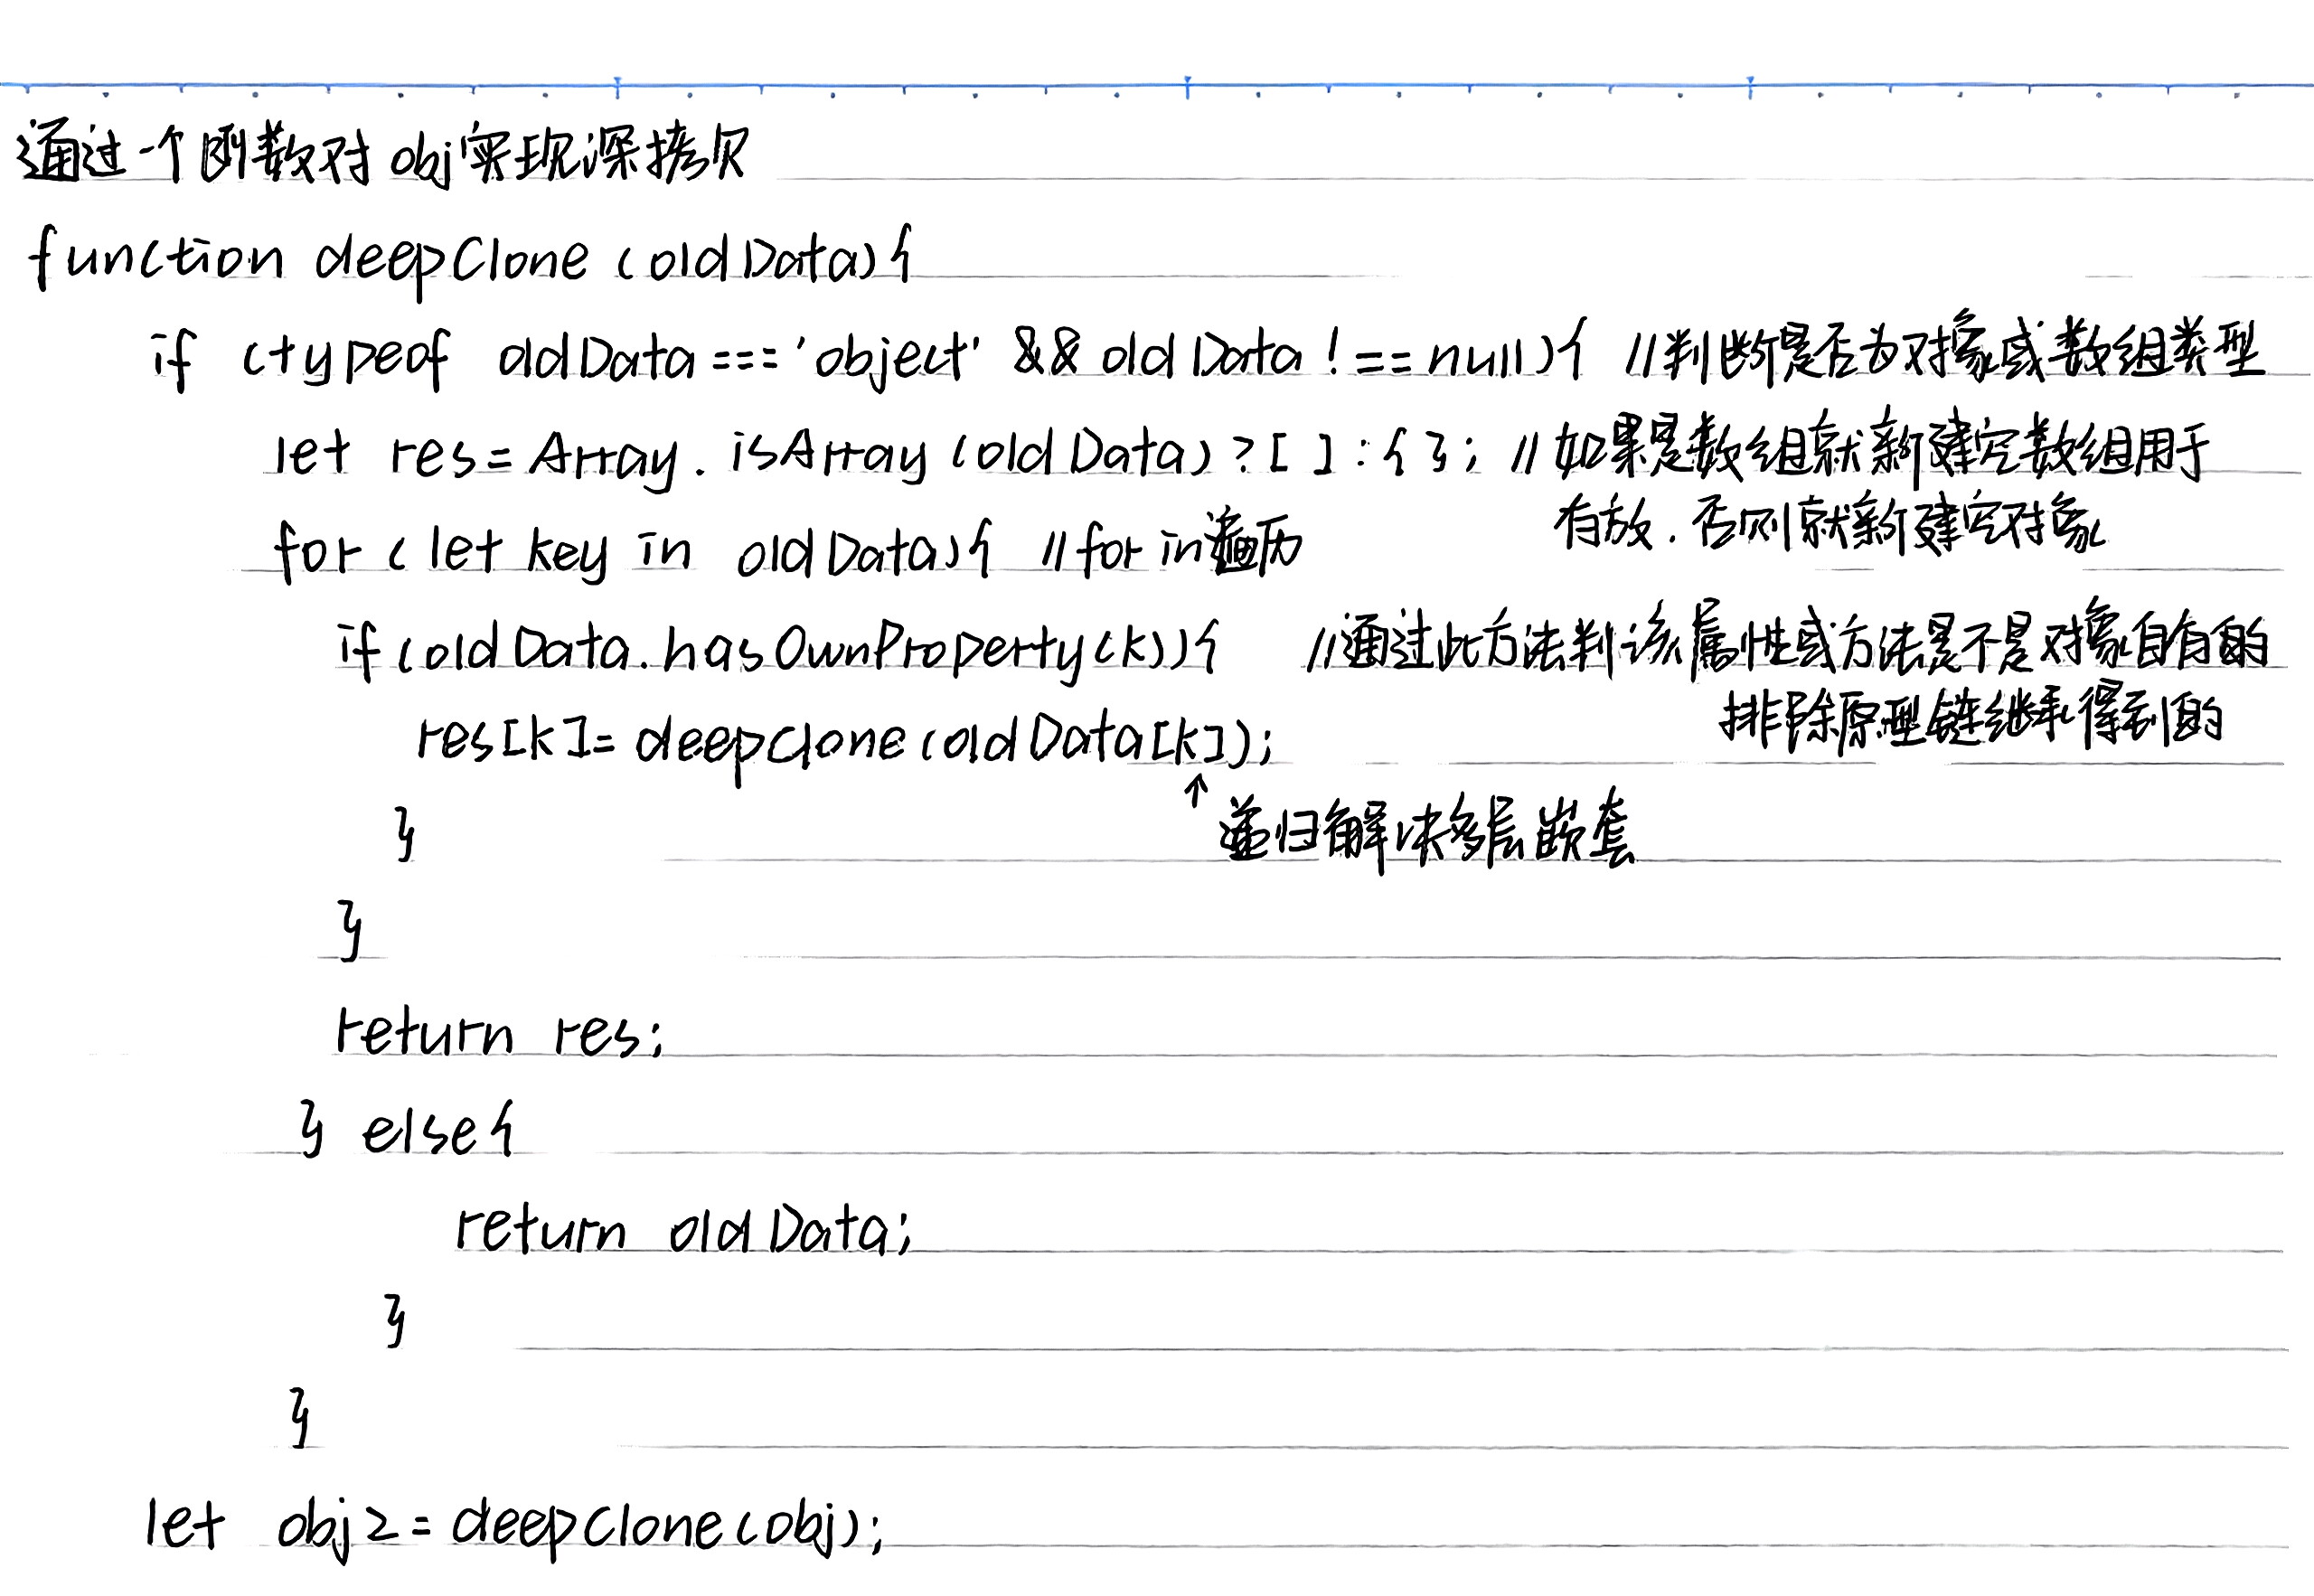 通过一个函数对obj实现深拷贝
function deepClone (oldData){
if (typeof oldData === 'object' && oldData !== null){ //判断是否为对象或数组类型
let res = Array.isArray (oldData) ? [ ] : { }; //如果是数组就新建空数组用于
有放.否则就新建空对象
for ( let key in oldData){ //for in遍历
if (oldData.hasOwnProperty(k)){ //通过此方法判该属性或方法是不是对象自有的
排除原型链继承得到的
res[k] = deepclone(oldData[k]);
↑
} 递归解决多层嵌套
}
return res;
} else{
return oldData;
}
}
let obj2 = deepClone(obj);